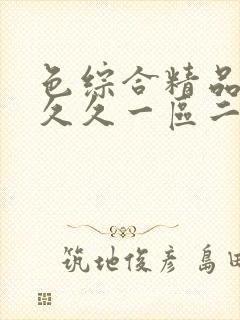 色综合精品
久久一區二
筑地俊彦 島田